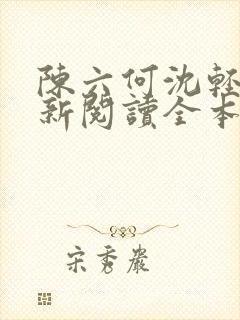 陳六何沈輕
新閱讀全本
宋秀嚴